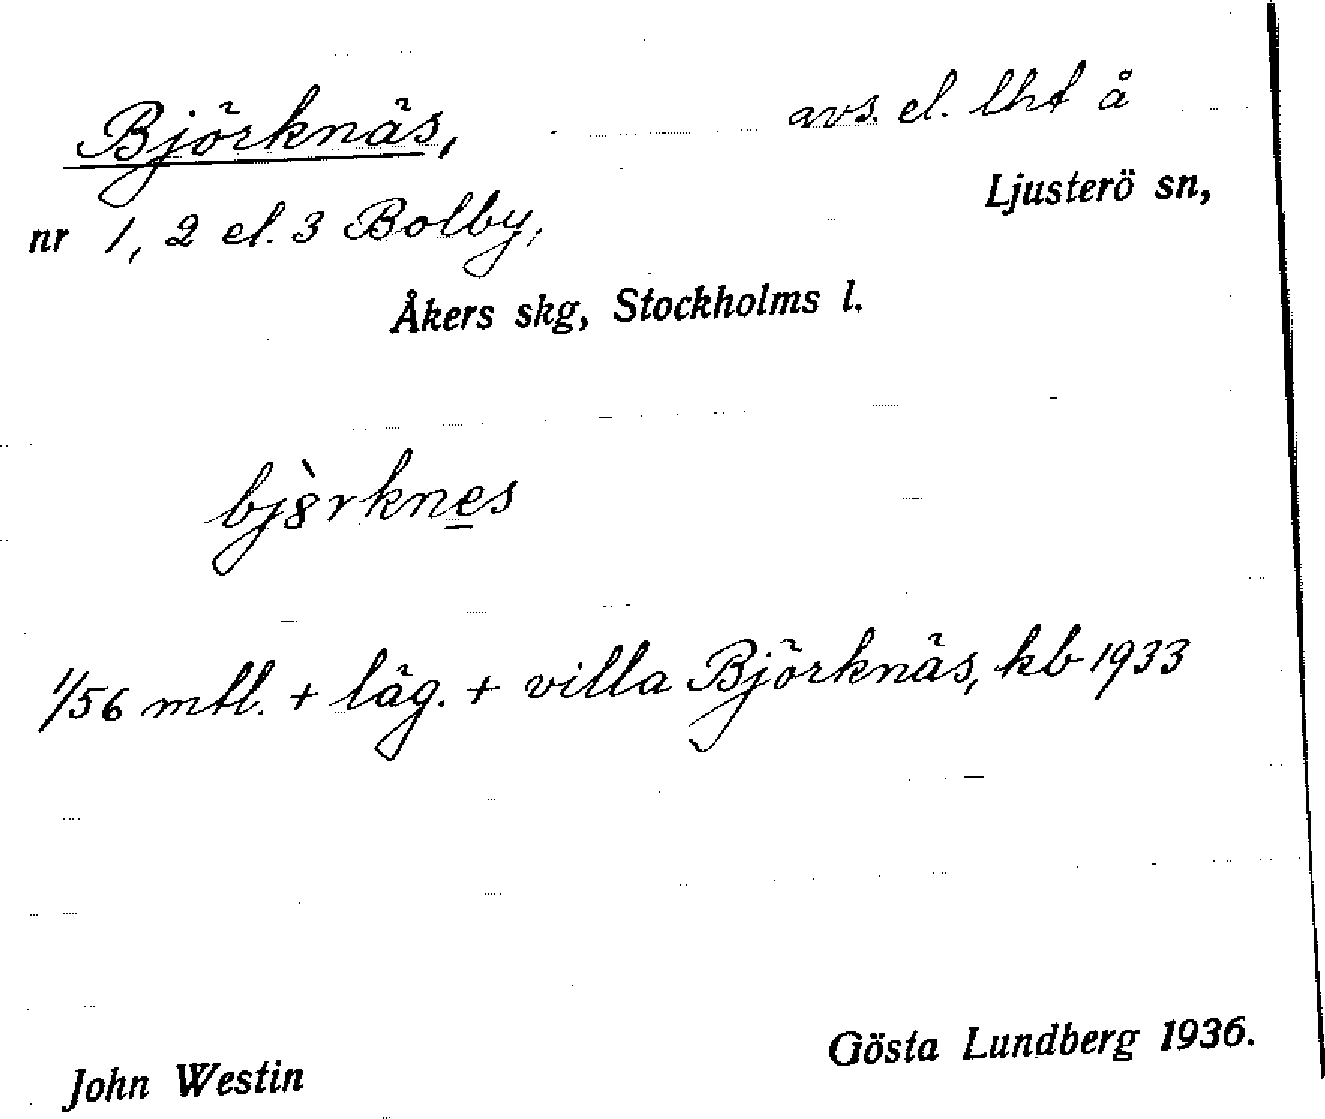 Björknäs, avs. el. lht å
Ljusterö sn,
nr 1, 2 el. 3 Bolby,
Åkers skg, Stockholms l.
bj8̀rkne̲s
1/56 mtl. + läg. + villa Björknäs, kb 1933
John Westin Gösta Lundberg 1936.